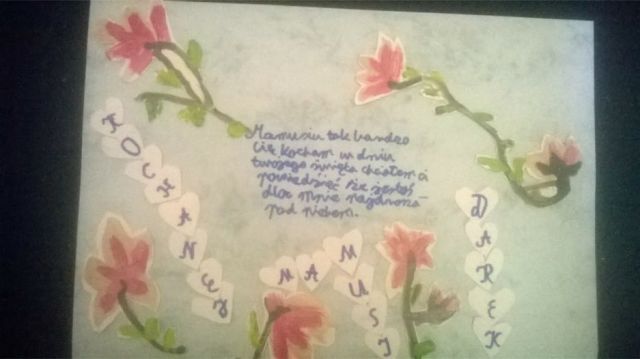 Mamusiu tak bardzo
Cię kocham w dniu
twojego święta chciałem ci
powiedzieć że jesteś -
dla mnie najdroższa
pod niebem.
KOCHANEJ
MAMUSI
DAREK